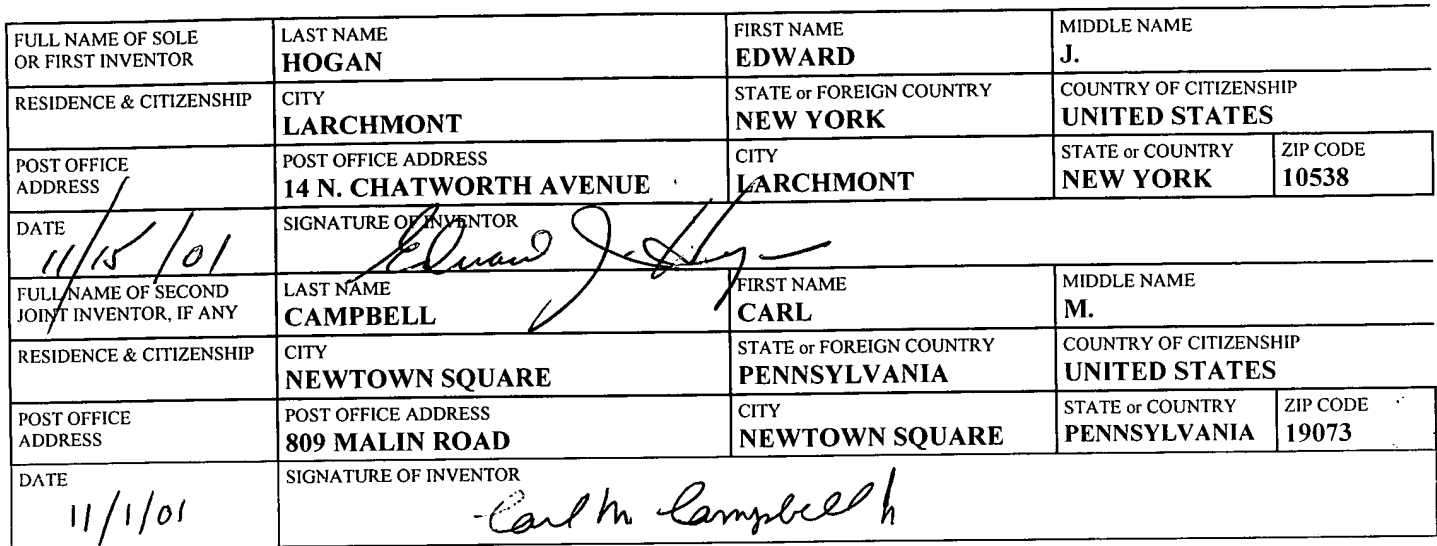 FULL NAME OF SOLE OR FIRST INVENTOR LAST NAME HOGAN FIRST NAME EDWARD MIDDLE NAME J.
RESIDENCE & CITIZENSHIP CITY LARCHMONT STATE or FOREIGN COUNTRY NEW YORK COUNTRY OF CITIZENSHIP UNITED STATES
POST OFFICE ADDRESS POST OFFICE ADDRESS 14 N. CHATWORTH AVENUE CITY LARCHMONT STATE or COUNTRY NEW YORK ZIP CODE 10538
DATE 11/15/01 SIGNATURE OF INVENTOR Edward J. Hogan
FULL NAME OF SECOND JOINT INVENTOR, IF ANY LAST NAME CAMPBELL FIRST NAME CARL MIDDLE NAME M.
RESIDENCE & CITIZENSHIP CITY NEWTOWN SQUARE STATE or FOREIGN COUNTRY PENNSYLVANIA COUNTRY OF CITIZENSHIP UNITED STATES
POST OFFICE ADDRESS POST OFFICE ADDRESS 809 MALIN ROAD CITY NEWTOWN SQUARE STATE or COUNTRY PENNSYLVANIA ZIP CODE 19073
DATE 11/1/01 SIGNATURE OF INVENTOR Carl M Campbell